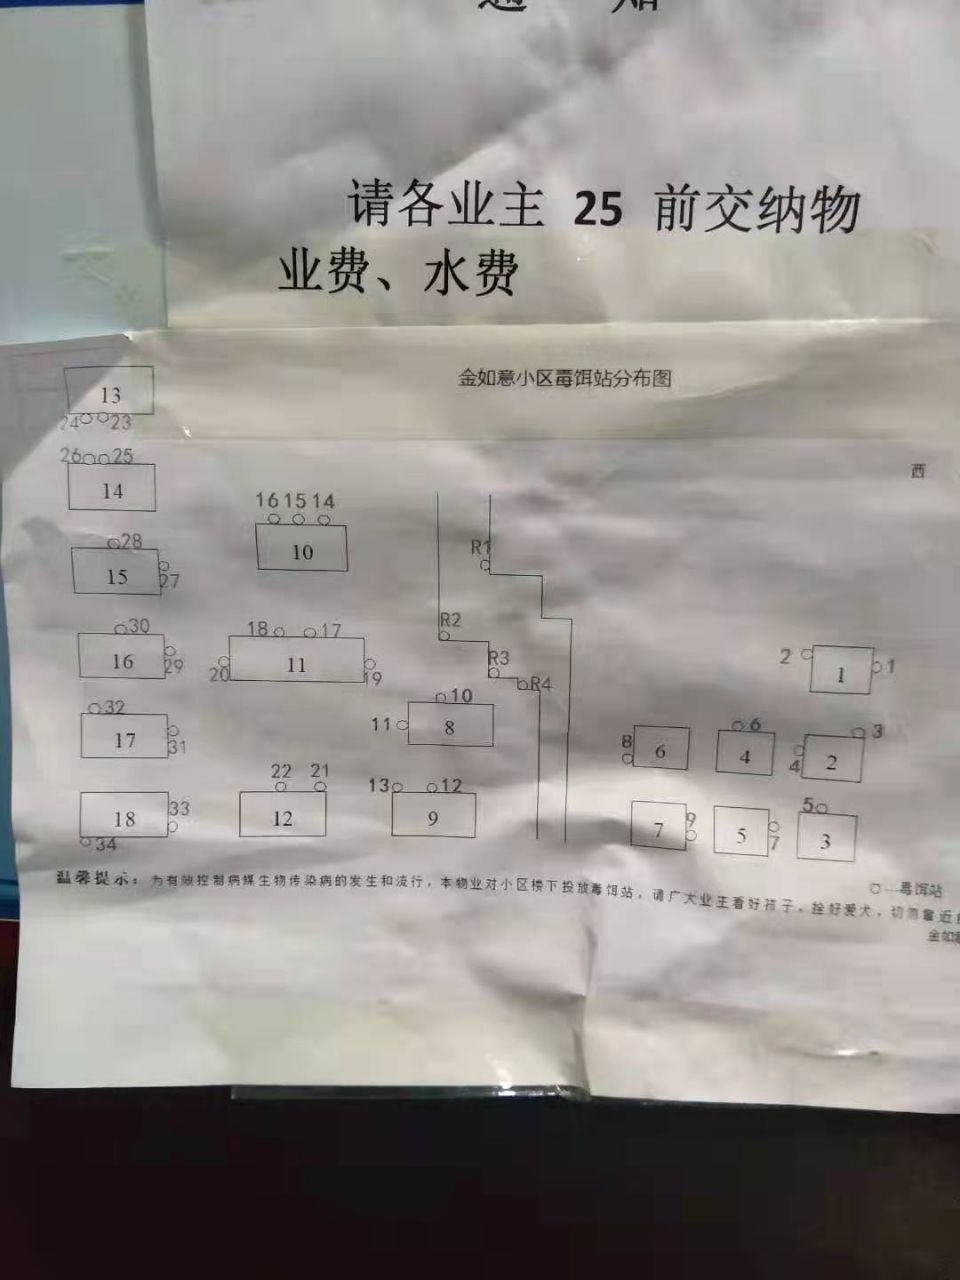 通 知
请各业主 25 前交纳物
业费、水费
金如意小区毒饵站分布图
西
13
24 23
26 25
14
16 15 14
10
28
15
27
R1
R2
30
16
29
18 17
11
20 19
R3
R4
2 1
1
32
17
31
10
11
8
8
6
6
4
3
4
2
22 21
12
13 12
9
33
18
34
9
7
5
7
5
3
○---毒饵站
温馨提示：为有效控制病媒生物传染病的发生和流行，本物业对小区楼下投放毒饵站，请广大业主看好孩子，拴好爱犬，切忽靠近
金如意